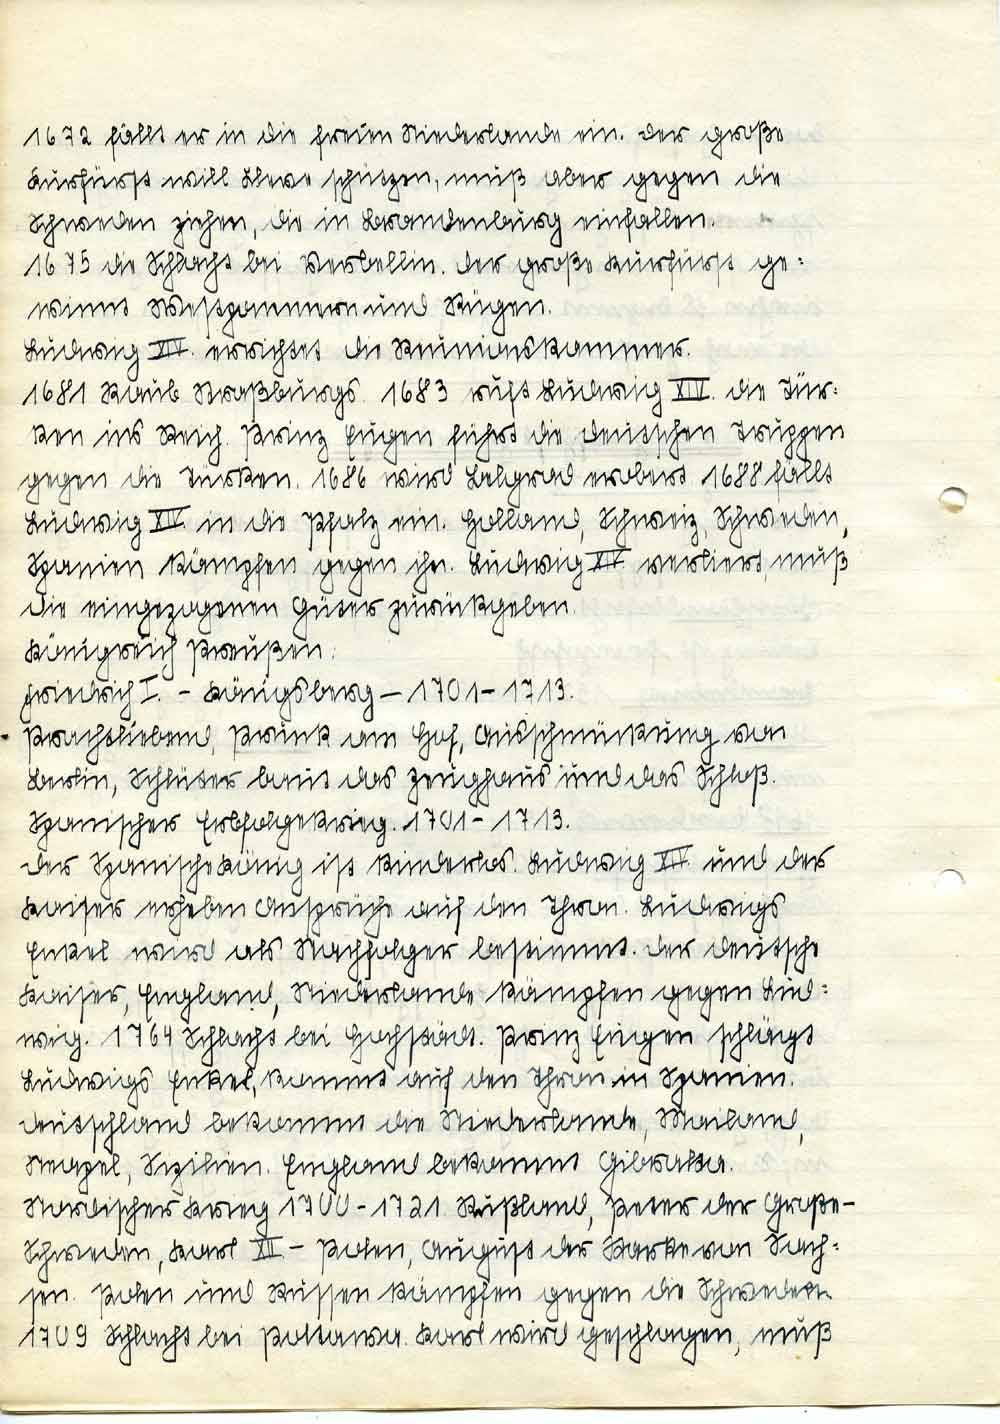 1672 fällt er in die freien Niederlande ein. Der große
Kurfürst will Kleve schützen, muß aber gegen die
Schweden ziehen, die in Brandenburg einfallen.
1675 die Schlacht bei Verbellin. Der große Kurfürst ge=
winnt Westpommern und Rügen.
Ludwig XIV. errichtet die Reunionskammer.
1681 Raub Straßburgs. 1683 ruft Ludwig XIV. die Tür=
ken ins Reich. Prinz Eugen führt die deutschen Truppen
gegen die Türken. 1686 wird Belgrad erobert. 1688 fällt
Ludwig XIV. in die Pfalz ein. Holland, Schweiz, Schweden,
Spanien kämpfen gegen ihn. Ludwig XIV verliert, muß
die eingezogenen Güter zurückgeben.
Königreich Preußen:
Friedrich I. – Königsberg – 1701 – 1713.
Prachtliebend, Prunk am Hof, Ausschmückung von
Berlin, Schlüter baut das Zeughaus und das Schloß.
Spanischer Erbfolgekrieg. 1701 – 1713.
Der Spanische König ist kinderlos. Ludwig XIV. und der
Kaiser erheben Ansprüche auf den Thron. Ludwigs
Enkel wird als Nachfolger bestimmt. Der deutsche
Kaiser, England, Niederlande kämpfen gegen Lud=
wig. 1764 Schlacht bei Hochstädt. Prinz Eugen schlägt
Ludwigs Enkel, kommt auf den Thron in Spanien.
Deutschland bekommt die Niederlande, Mailand,
Neapel, Sizilien. England bekommt
Nordischer Krieg 1700 – 1721 Rußland, Peter der Große –
Schweden, Karl XII – Polen, August der Starke von Sach=
sen. Polen und Russen kämpfen gegen die Schweden
1709 Schlacht bei Poltawa. Karl wird geschlagen, muß